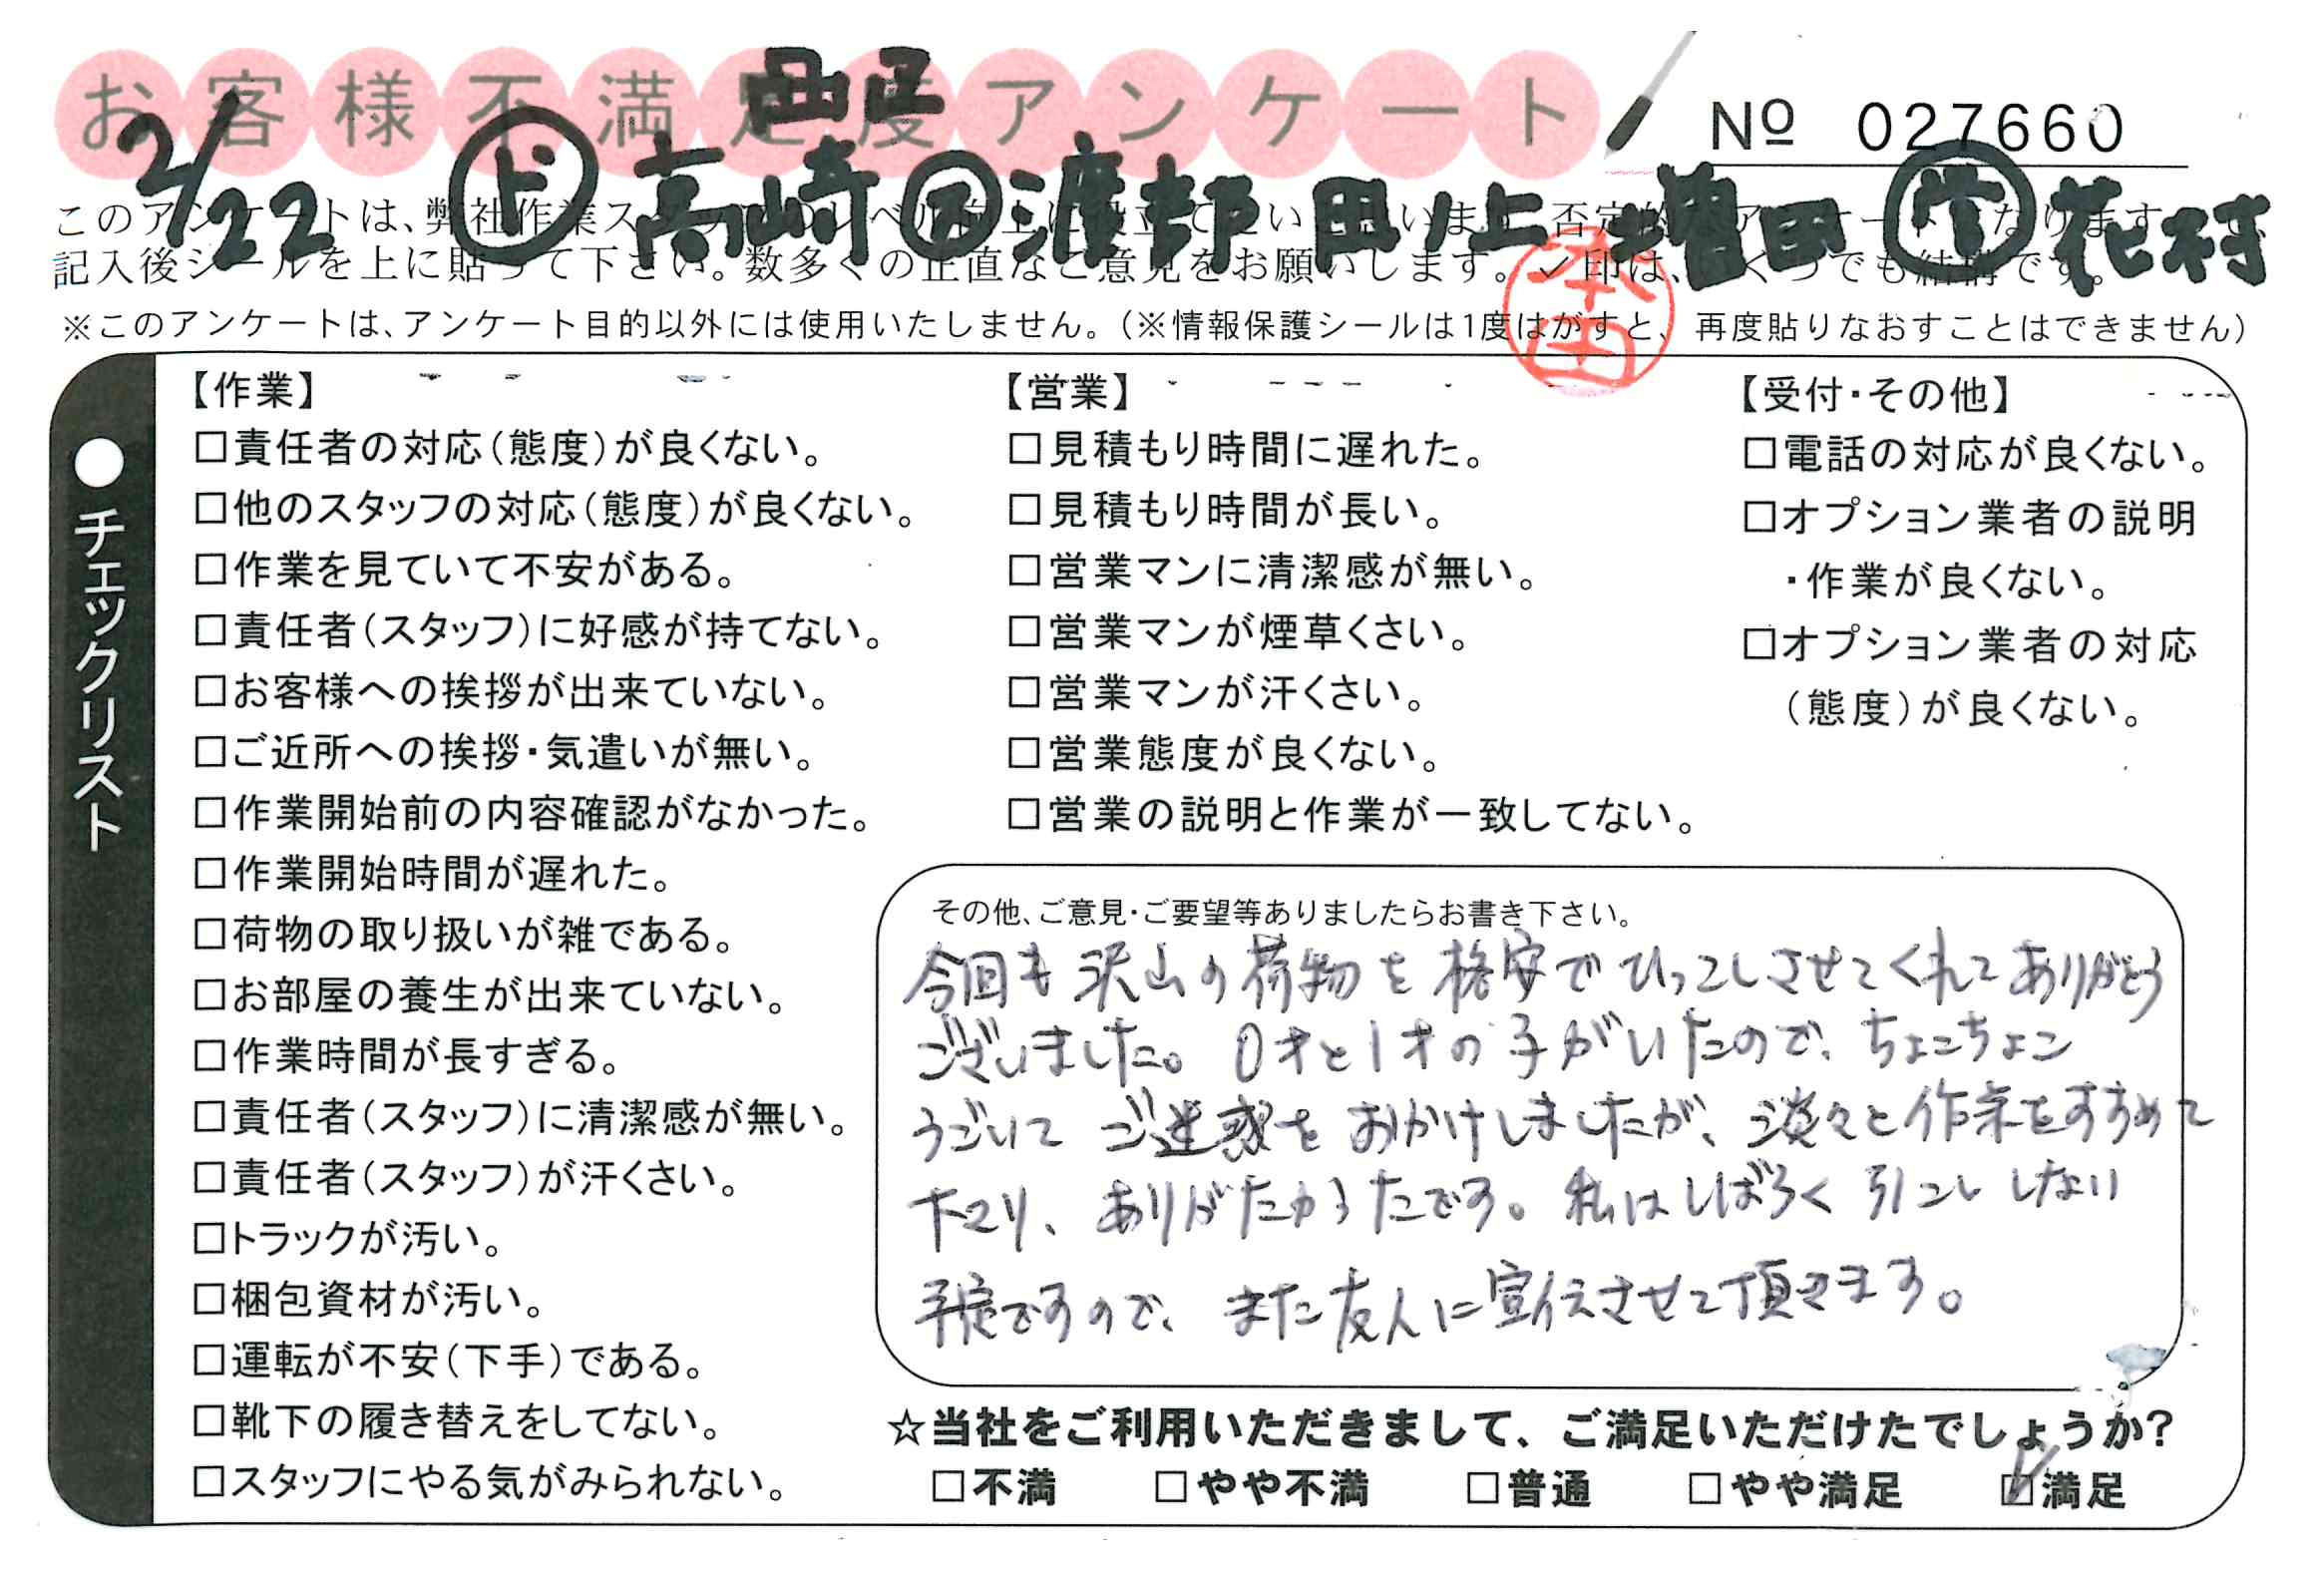 お客様不満足度アンケート
西正
№ 027660
2/22 ド 高崎 渡部 田ノ上 増田 営 花村
このアンケートは、弊社作業スタッフのレベル向上に役立てたいと思います。否定的なアンケートになりますので、
記入後シールを上に貼って下さい。数多くの正直なご意見をお願いします。✓印は、いくつでも結構です。
※このアンケートは、アンケート目的以外には使用いたしません。（※情報保護シールは1度はがすと、再度貼りなおすことはできません）
本田
●チェックリスト
【作業】
□責任者の対応（態度）が良くない。
□他のスタッフの対応（態度）が良くない。
□作業を見ていて不安がある。
□責任者（スタッフ）に好感が持てない。
□お客様への挨拶が出来ていない。
□ご近所への挨拶・気遣いが無い。
□作業開始前の内容確認がなかった。
□作業開始時間が遅れた。
□荷物の取り扱いが雑である。
□お部屋の養生が出来ていない。
□作業時間が長すぎる。
□責任者（スタッフ）に清潔感が無い。
□責任者（スタッフ）が汗くさい。
□トラックが汚い。
□梱包資材が汚い。
□運転が不安（下手）である。
□靴下の履き替えをしてない。
□スタッフにやる気がみられない。
【営業】
□見積もり時間に遅れた。
□見積もり時間が長い。
□営業マンに清潔感が無い。
□営業マンが煙草くさい。
□営業マンが汗くさい。
□営業態度が良くない。
□営業の説明と作業が一致してない。
【受付・その他】
□電話の対応が良くない。
□オプション業者の説明
・作業が良くない。
□オプション業者の対応
（態度）が良くない。
その他、ご意見・ご要望等ありましたらお書き下さい。
今回も沢山の荷物を格安でひっこしさせてくれてありがとう
ございました。0才と1才の子がいたので、ちょこちょこ
うごいてご迷惑をおかけしましたが、淡々と作業をすすめて
下さり、ありがたかったです。私はしばらく引こししない
予定ですので、また友人に宣伝させて頂きます。
☆当社をご利用いただきまして、ご満足いただけたでしょうか？
□不満 □やや不満 □普通 □やや満足 ☑満足